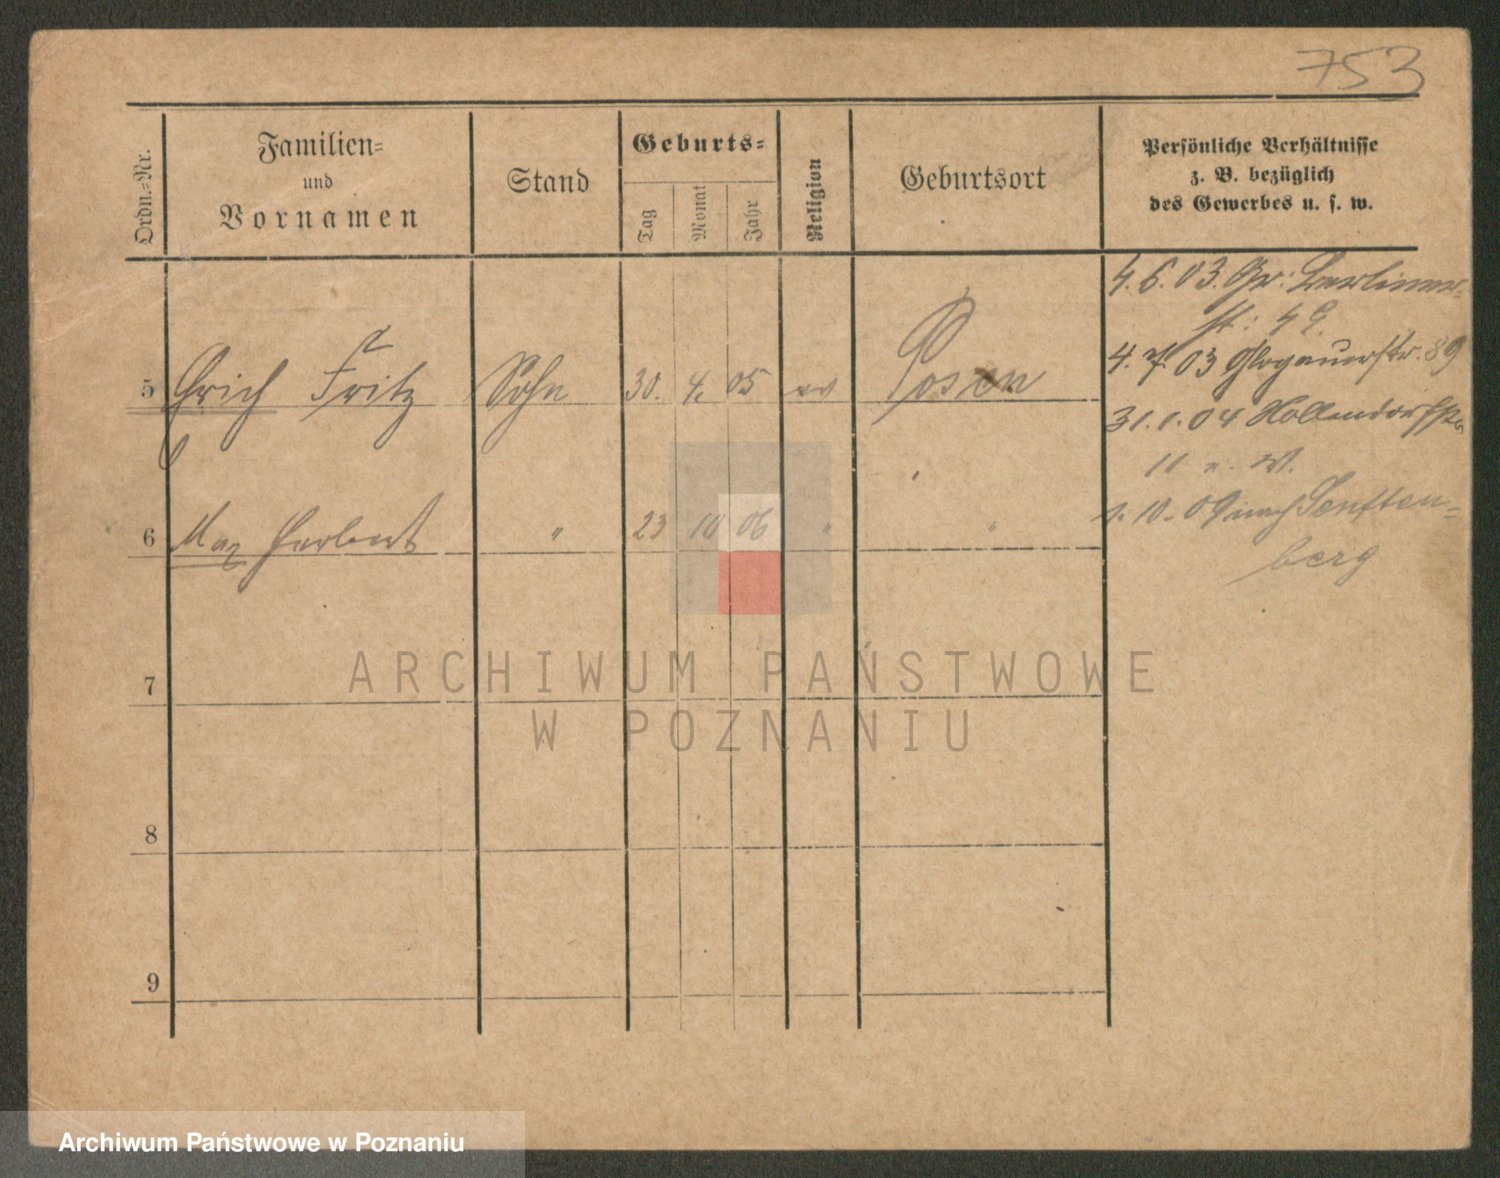 753
Ordn.=Nr.
Familien=
und
Vornamen
Stand
Geburts=
Tag
Monat
Jahr
Religion
Geburtsort
Persönliche Verhältnisse
z. B. bezüglich
des Gewerbes u. s. w.
4. 6. 03. Gr: Berliner-
st:
4. 7. 03 Glogauerstr. 89
5 Erich Fritz Sohn 30. 4. 05 ev Posen
31. 1. 04
11 n. W.
6 Max Herbert " 23 10 06 " "
1. 10. 09 nach Senften=
berg
7
8
9
ARCHIWUM PAŃSTWOWE
W POZNANIU
Archiwum Państwowe w Poznaniu